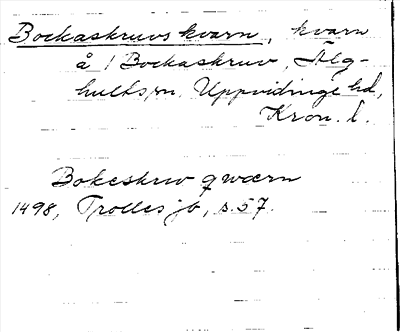 Bockaskruvs kvarn, kvarn
å 1 Bockaskruv, Älg-
hults sn. Uppvidinge hd,
Kron. l.
Bokeskrw qwærn
1498, Trolles jb, s. 57.